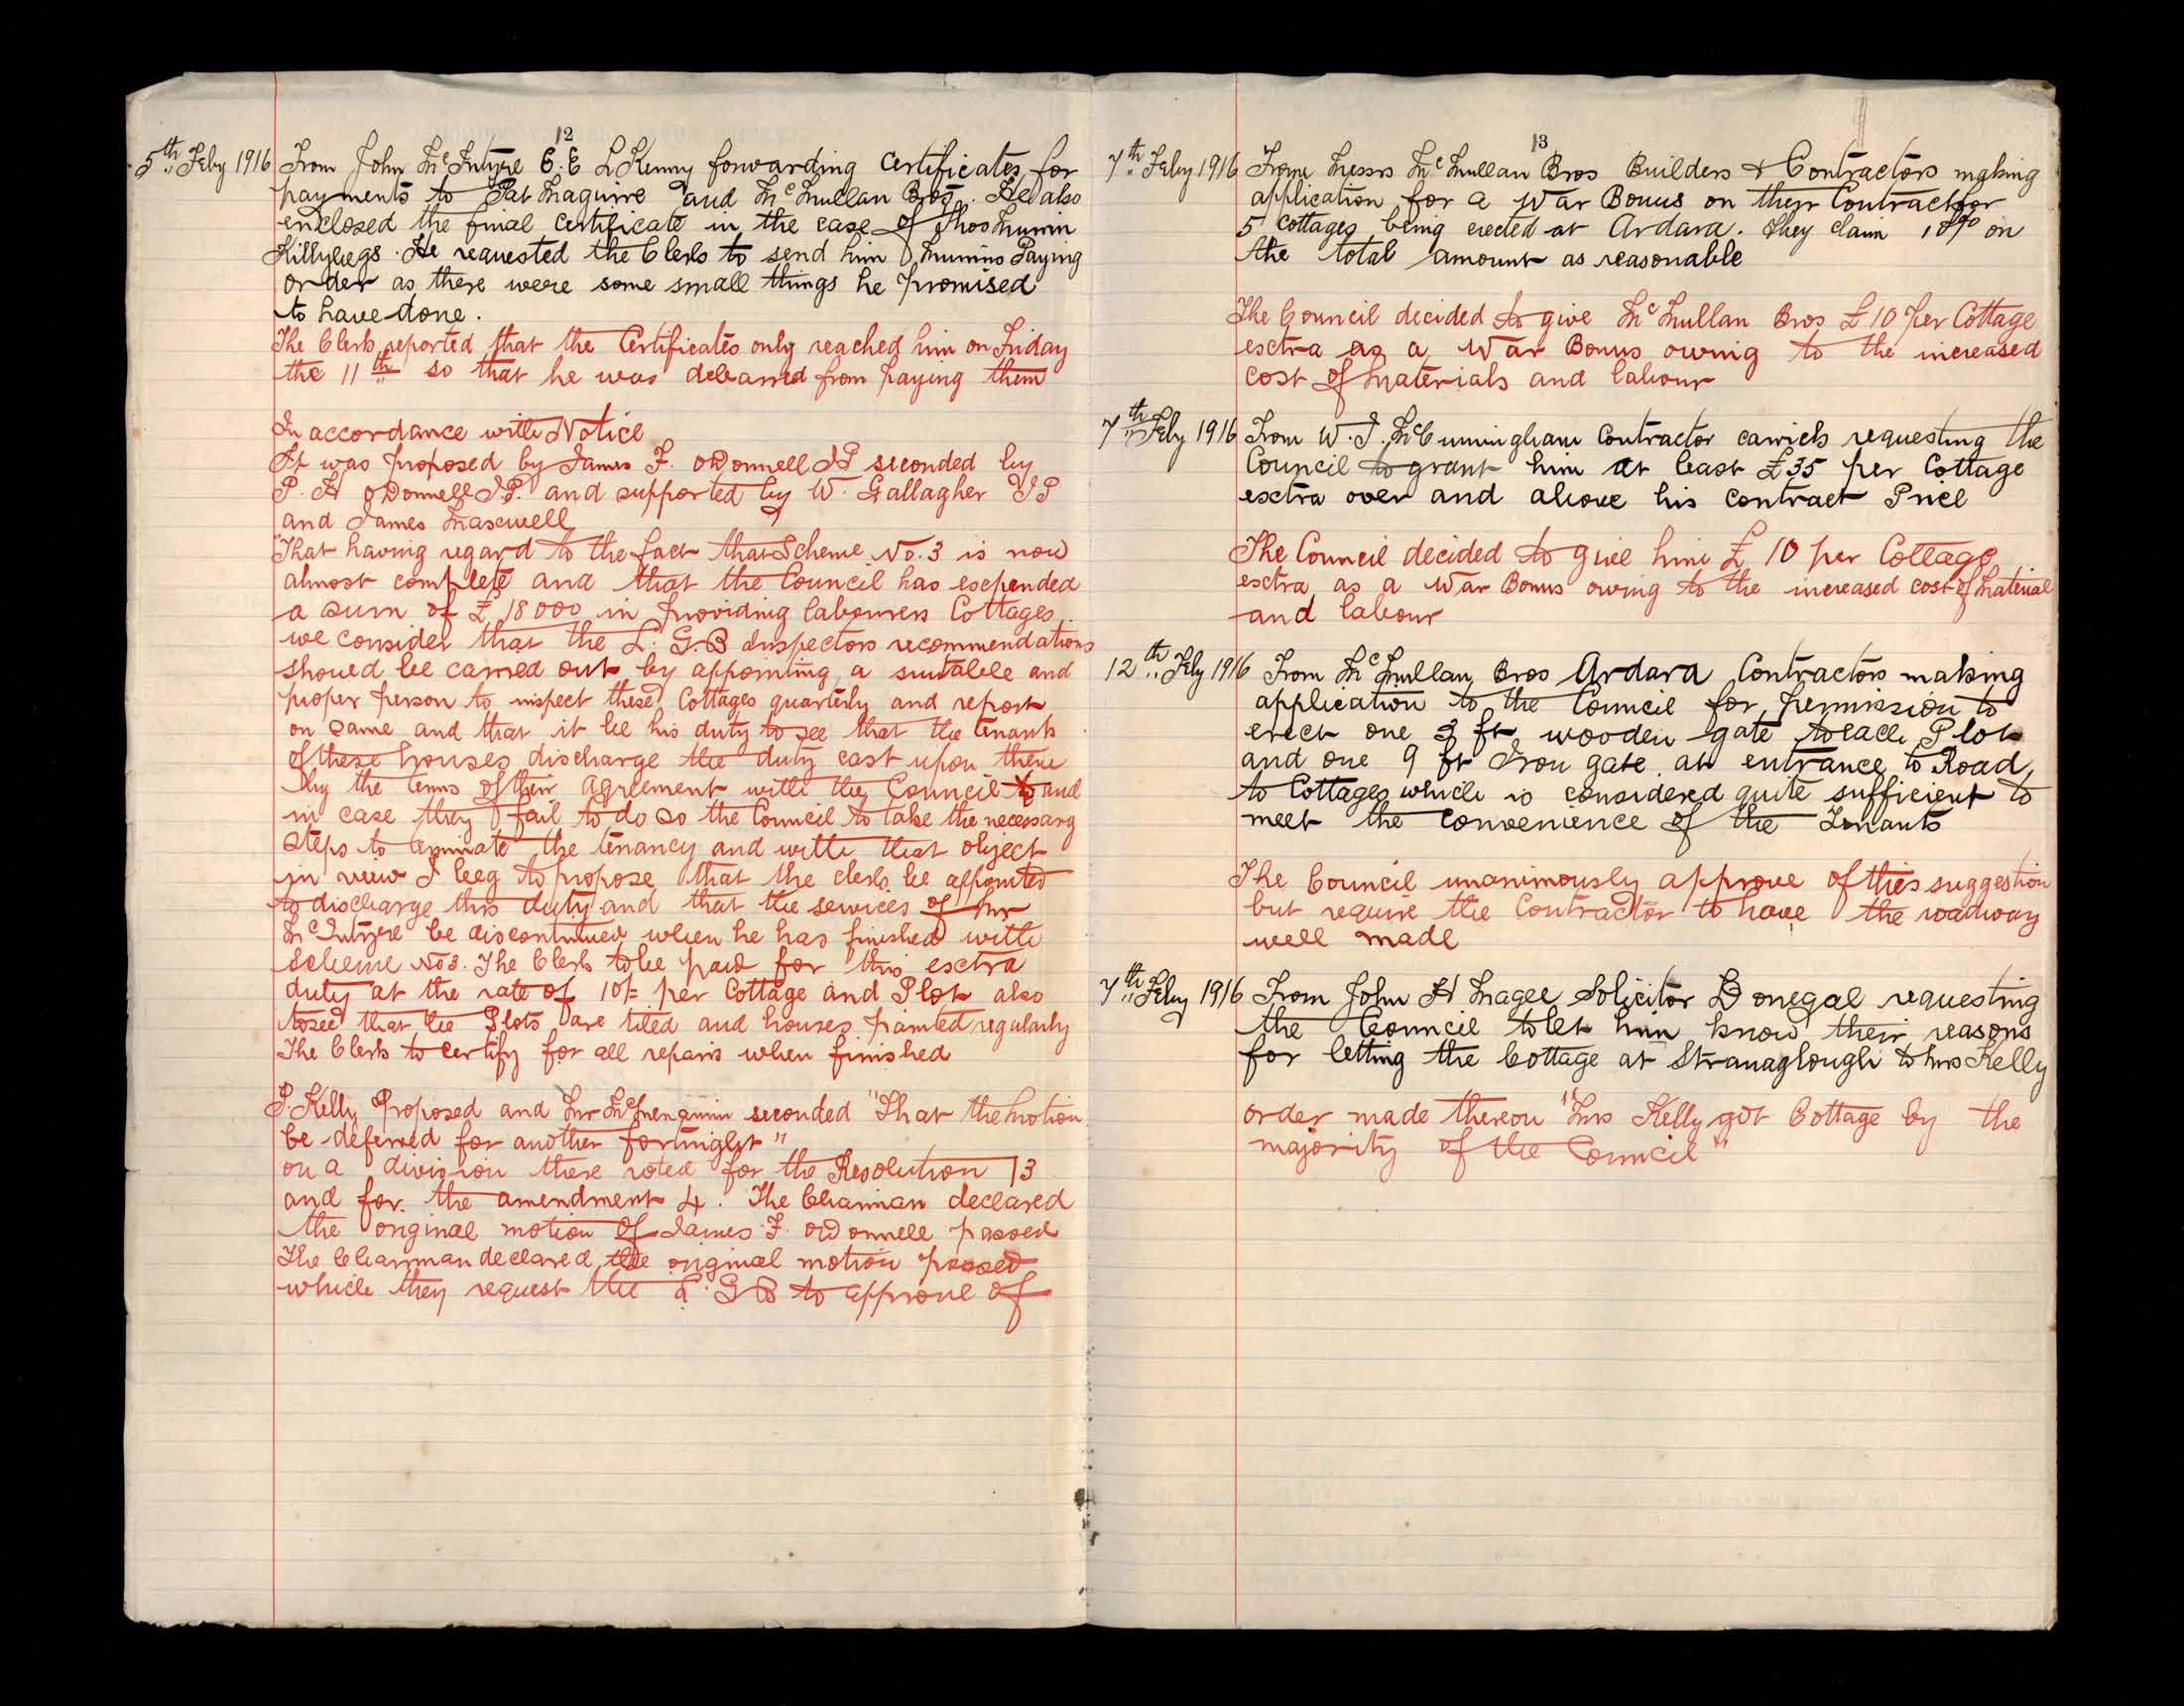 12
5th Feby 1916 From John McIntyre C.E LKenny forwarding Certificates for
payments to Pat Maguire and McMullan Bros. He also
enclosed the final certificate in the case of Thos
Killybegs. He requested the Clerk to send him Paying
order as there were some small things he promised
to have done.
The Clerk reported that the Certificates only reached him on Friday
the 11th so that he was debarred from paying them
In accordance with Notice
It was proposed by James F. ODonnell JP seconded by
P. H ODonnell J.P. and supported by W. Gallagher JP
and James Maxwell
"That having regard to the fact that Scheme No. 3 is now
almost complete and that the Council has expended
a sum of £18000 in providing labourers Cottages
we consider that the L. G.B Inspectors recommendations
should be carried out by appointing a suitable and
proper person to inspect these Cottages quarterly and report
on same and that it be his duty to see that the tenants
of these houses discharge the duty cast upon them
by the terms of their agreement with the Council and
in case they fail to do so the Council to take the necessary
steps to terminate the tenancy and with that object
in view I beg to propose that the clerk be appointed
to discharge this duty and that the services of Mr
McIntyre be discontinued when he has finished with
Scheme No3. The Clerk to be paid for this extra
duty at the rate of 10/= per Cottage and Plot also
to see that the Plots are tiled and houses painted regularly
The Clerk to certify for all repairs when finished
P. Kelly Proposed and Mr seconded "That the Motion
be deferred for another fortnight"
on a division there voted for the Resolution 13
and for the amendment 4. The Chairman declared
the original motion of James F. ODonnell passed
The Chairman declared the original motion passed
which they request the L. G B to approve of
13
7th Feby 1916 From Messrs McMullan Bros Builders & Contractors making
application for a War Bonus on their Contract for
5 Cottages being erected at Ardara. They claim 10% on
the total amount as reasonable
The Council decided to give McMullan Bros £10 per Cottage
extra as a War Bonus owing to the increased
cost of Materials and labour
7th Feby 1916 From W. J. McCunningham Contractor Carrick requesting the
Council to grant him at least £35 per Cottage
extra over and above his contract Price
The Council decided to give him £10 per Cottage
extra as a War Bonus owing to the increased cost of Material
and labour
12th Feby 1916 From McMullan Bros Ardara Contractors making
application to the Council for permission to
erect one 3 ft wooden gate to each Plot
and one 9 ft Iron gate at entrance to Road
to Cottages which is considered quite sufficient to
meet the convenience of the Tenants
The Council unanimously approve of this suggestion
but require the Contractor to have the roadway
well made
7th Feby 1916 From John H Magee Solicitor Donegal requesting
the Council to let him know their reasons
for letting the Cottage at Stranaglough to Mrs Kelly
order made thereon "Mrs Kelly got Cottage by the
majority of the Council"